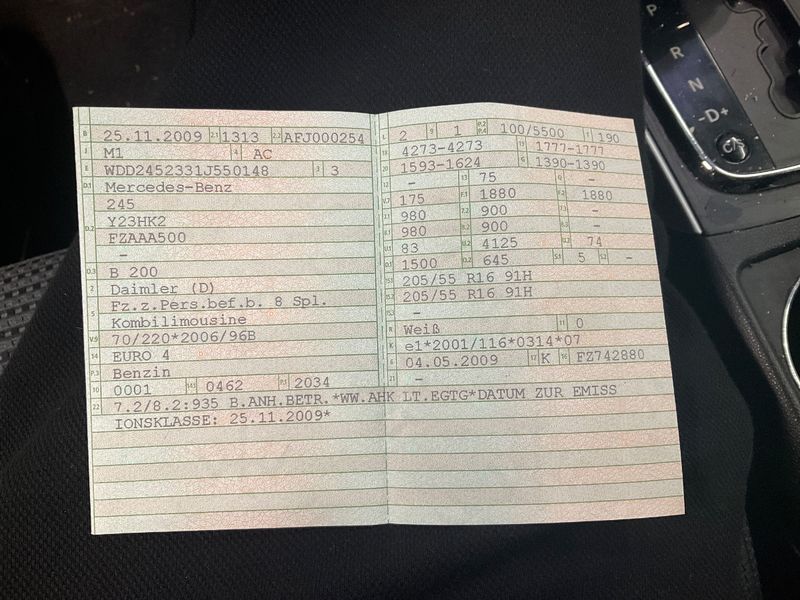 B 25.11.2009 2.1 1313 2.2 AFJ000254
J M1 4 AC
E WDD2452331J550148 3 3
D.1 Mercedes-Benz
245
D.2 Y23HK2
FZAAA500
–
D.3 B 200
2 Daimler (D)
5 Fz.z.Pers.bef.b. 8 Spl.
Kombilimousine
V.9 70/220*2006/96B
14 EURO 4
P.3 Benzin
10 0001 14.1 0462 P.1 2034
22 7.2/8.2:935 B.ANH.BETR.*WW.AHK LT.EGTG*DATUM ZUR EMISS
IONSKLASSE: 25.11.2009*
L 2 9 1 P.2 P.4 100/5500 T 190
18 4273-4273 19 1777-1777
20 1593-1624 G 1390-1390
12 – 13 75 Q –
V.7 175 F.1 1880 F.2 1880
7.1 980 7.2 900 7.3 –
8.1 980 8.2 900 8.3 –
U.1 83 U.2 4125 U.3 74
O.1 1500 O.2 645 S.1 5 S.2 –
15.1 205/55 R16 91H
15.2 205/55 R16 91H
15.3 –
R Weiß 11 0
K e1*2001/116*0314*07
6 04.05.2009 17 K 16 FZ742880
21 –
P
R
N
-D+